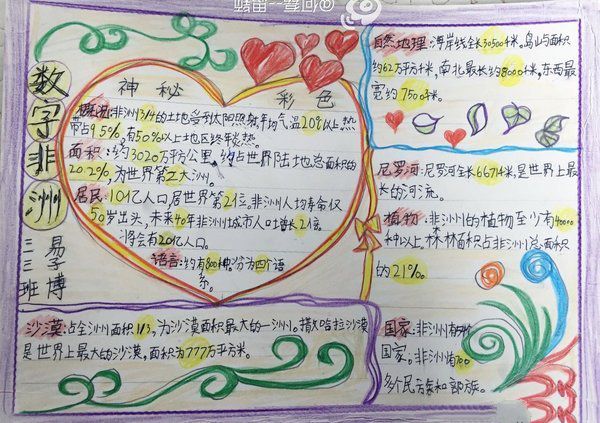 @何春--果颖
数字非洲
三三班
易孚博
神秘
彩色
概况:非洲3/4的土地受到太阳照射年均气温20℃以上热
带占95%,有50%以上地区终年炎热。
面积:约3020万平方公里,约占世界陆地总面积的
20.2%,为世界第2大洲。
居民:10亿人口居世界第2位.非洲人均寿命仅
50岁出头,未来40年非洲城市人口增长2倍。
将会有20亿人口。
语言:约有800种.分为四个语
系。
沙漠:占全洲面积1/3,为沙漠面积最大的一洲。撒哈拉沙漠
是世界上最大的沙漠,面积为777万平方米。
自然地理:海岸线全长30500千米。岛屿面积
约62万平方千米,南北最长约8000千米,东西最
宽约7500千米。
尼罗河:尼罗河全长6671千米,是世界上最
长的河流。
植物:非洲的植物至少有40000
种以上,森林面积占非洲总面积
的21%。
国家:非洲有
国家。非洲有700
多个民族和部族。